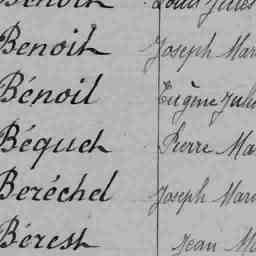 Benoit Louis Jules
Benoit Joseph Mari
Bénoil Eugène Jule
Béquet Pierre Ma
Beréchel Joseph Mari
Bérest Jean M